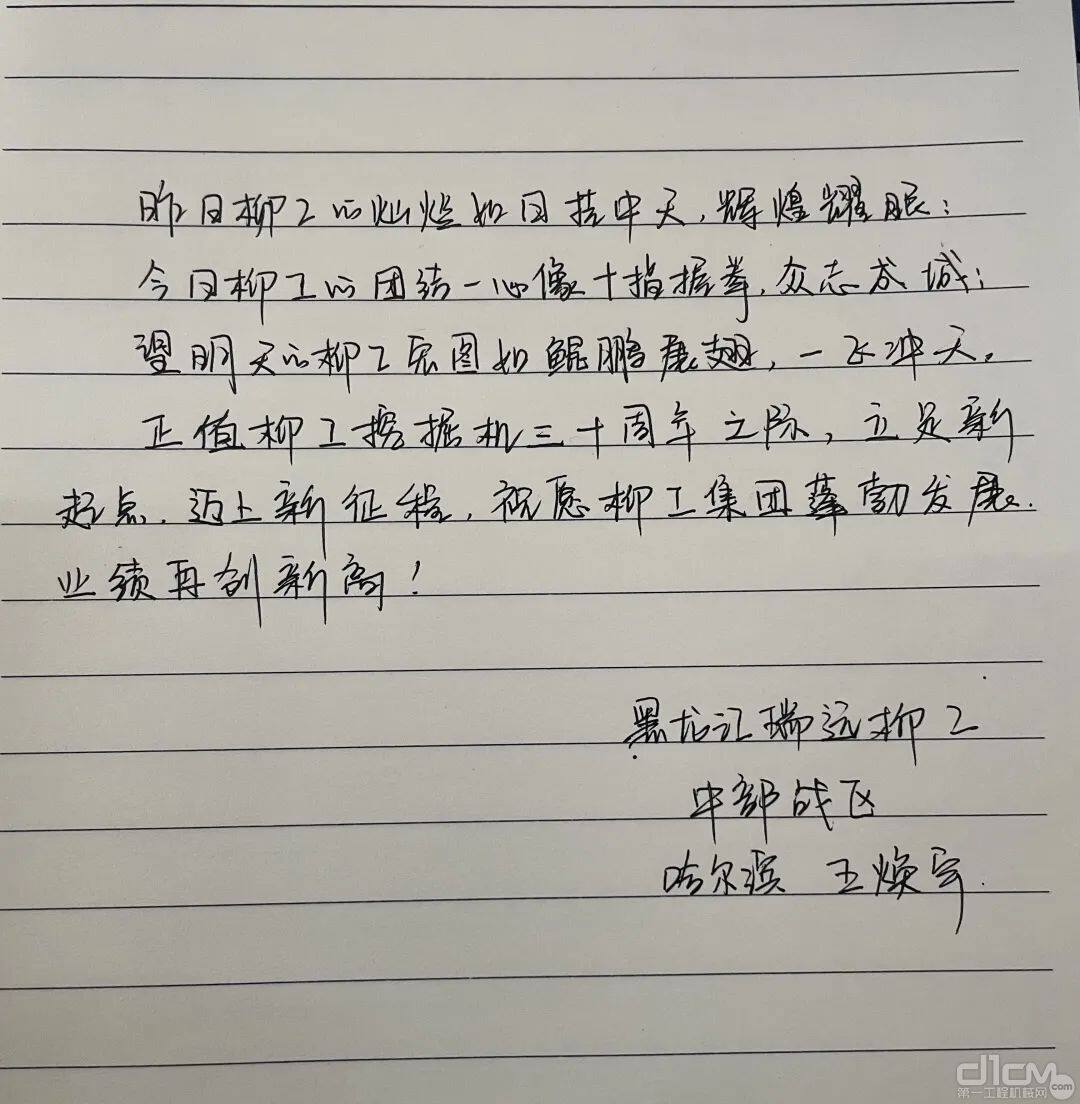 昨日柳工的灿烂如日挂中天，辉煌耀眼；
今日柳工的团结一心像十指握拳，众志成城；
望明天的柳工宏图如鲲鹏展翅，一飞冲天。
正值柳工挖掘机三十周年之际，立足新
起点，迈上新征程，祝愿柳工集团蓬勃发展，
业绩再创新高！
黑龙江瑞远柳工
中部战区
哈尔滨 王焕宇
d1cm.com
第一工程机械网